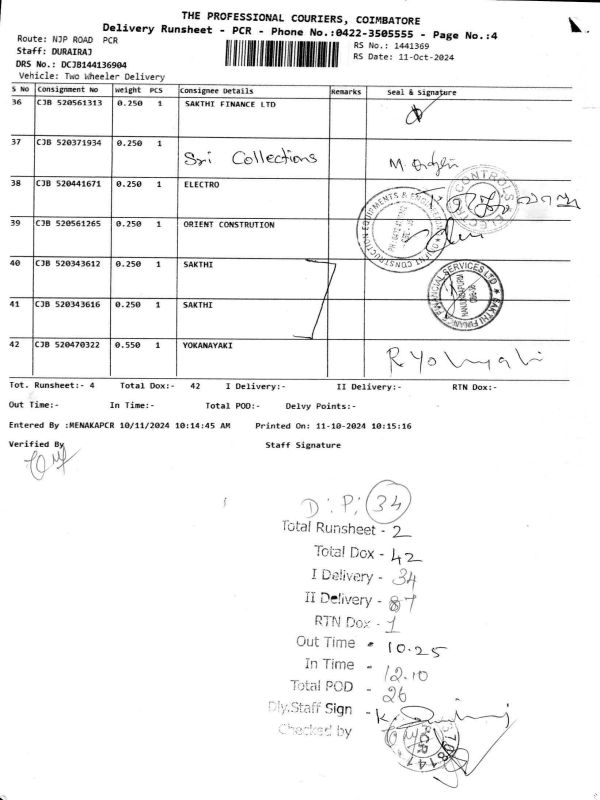 THE PROFESSIONAL COURIERS, COIMBATORE
Delivery Runsheet - PCR - Phone No.:0422-3505555 - Page No.:4
Route: NJP ROAD PCR
RS No.: 1441369
Staff: DURAIRAJ
RS Date: 11-Oct-2024
DRS No.: DCJB144136904
Vehicle: Two Wheeler Delivery
S No Consignment No Weight PCS Consignee Details Remarks Seal & Signature
36 CJB 520561313 0.250 1 SAKTHI FINANCE LTD
37 CJB 520371934 0.250 1
Sri Collections
38 CJB 520441671 0.250 1 ELECTRO
39 CJB 520561265 0.250 1 ORIENT CONSTRUTION
40 CJB 520343612 0.250 1 SAKTHI
41 CJB 520343616 0.250 1 SAKTHI
42 CJB 520470322 0.550 1 YOKANAYAKI
Tot. Runsheet:- 4 Total Dox:- 42 I Delivery:- II Delivery:- RTN Dox:-
Out Time:- In Time:- Total POD:- Delvy Points:-
Entered By :MENAKAPCR 10/11/2024 10:14:45 AM Printed On: 11-10-2024 10:15:16
Verified By Staff Signature
D.P; 34
Total Runsheet - 2
Total Dox - 42
I Delivery - 34
II Delivery - 7
RTN Dox - 1
Out Time - 10.25
In Time - 12.10
Total POD - 26
Dly.Staff Sign -
Checked by